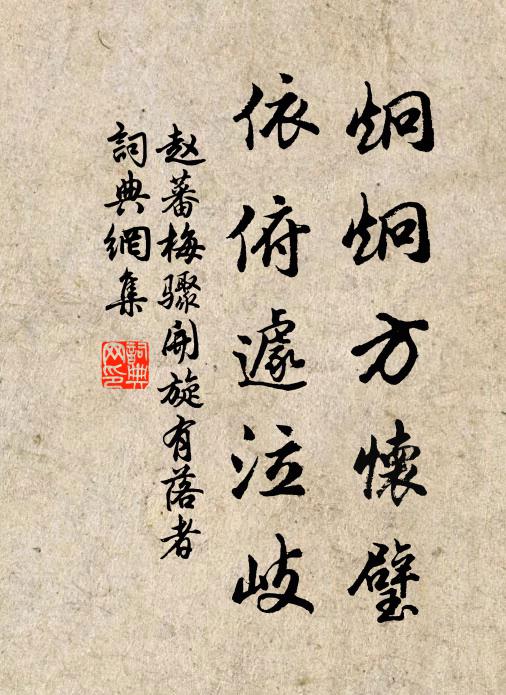 炯炯方懷璧
依俯遽泣歧
赵蕃梅驟開旋有落者
詞典網集
詞典網印